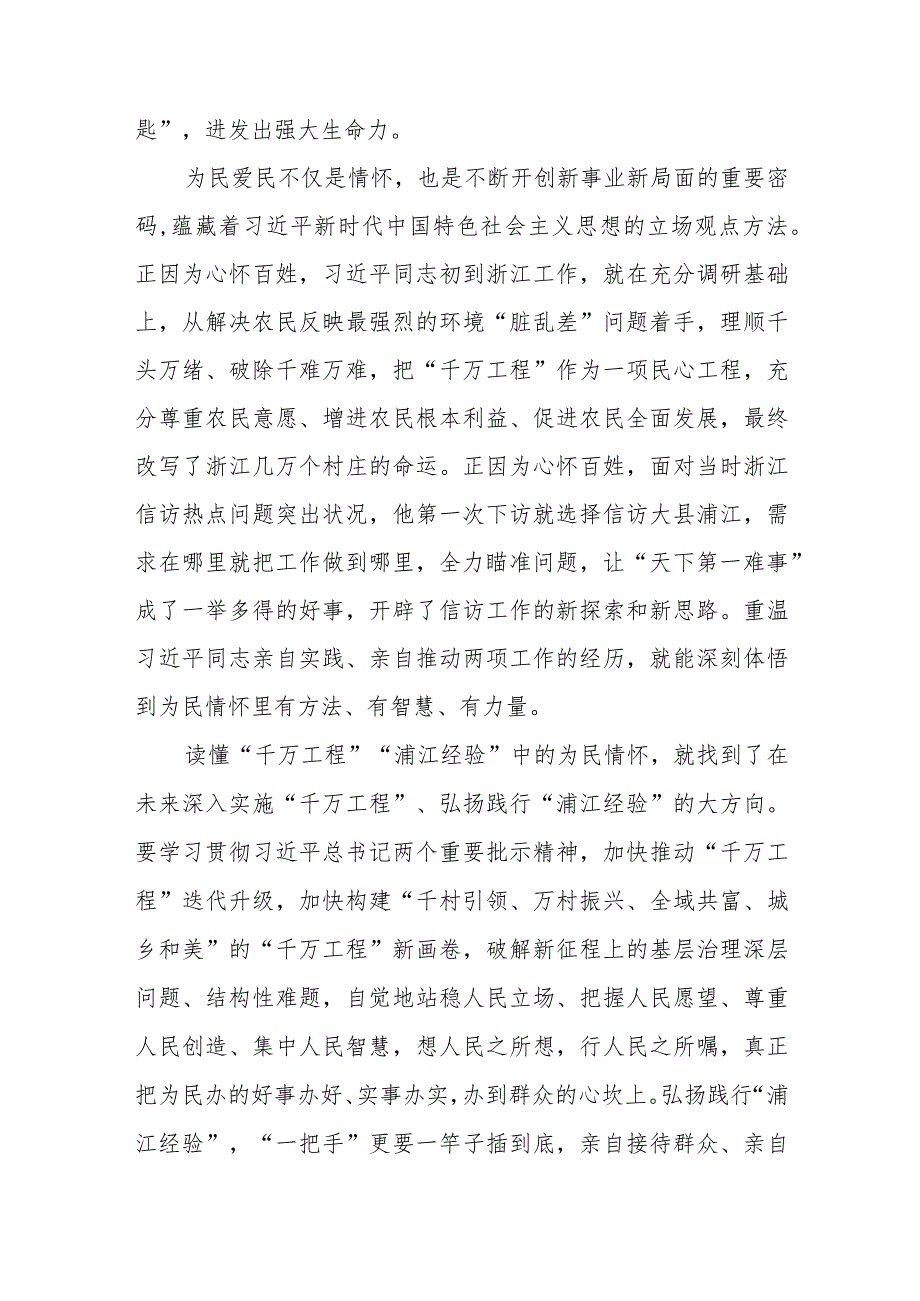 匙”，迸发出强大生命力。
为民爱民不仅是情怀，也是不断开创新事业新局面的重要密
码,蕴藏着习近平新时代中国特色社会主义思想的立场观点方法。
正因为心怀百姓，习近平同志初到浙江工作，就在充分调研基础
上，从解决农民反映最强烈的环境“脏乱差”问题着手，理顺千
头万绪、破除千难万难，把“千万工程”作为一项民心工程，充
分尊重农民意愿、增进农民根本利益、促进农民全面发展，最终
改写了浙江几万个村庄的命运。正因为心怀百姓，面对当时浙江
信访热点问题突出状况，他第一次下访就选择信访大县浦江，需
求在哪里就把工作做到哪里，全力瞄准问题，让“天下第一难事”
成了一举多得的好事，开辟了信访工作的新探索和新思路。重温
习近平同志亲自实践、亲自推动两项工作的经历，就能深刻体悟
到为民情怀里有方法、有智慧、有力量。
读懂“千万工程”“浦江经验”中的为民情怀，就找到了在
未来深入实施“千万工程”、弘扬践行“浦江经验”的大方向。
要学习贯彻习近平总书记两个重要批示精神，加快推动“千万工
程”迭代升级，加快构建“千村引领、万村振兴、全域共富、城
乡和美”的“千万工程”新画卷，破解新征程上的基层治理深层
问题、结构性难题，自觉地站稳人民立场、把握人民愿望、尊重
人民创造、集中人民智慧，想人民之所想，行人民之所嘱，真正
把为民办的好事办好、实事办实,办到群众的心坎上。弘扬践行“浦
江经验”，“一把手”更要一竿子插到底，亲自接待群众、亲自